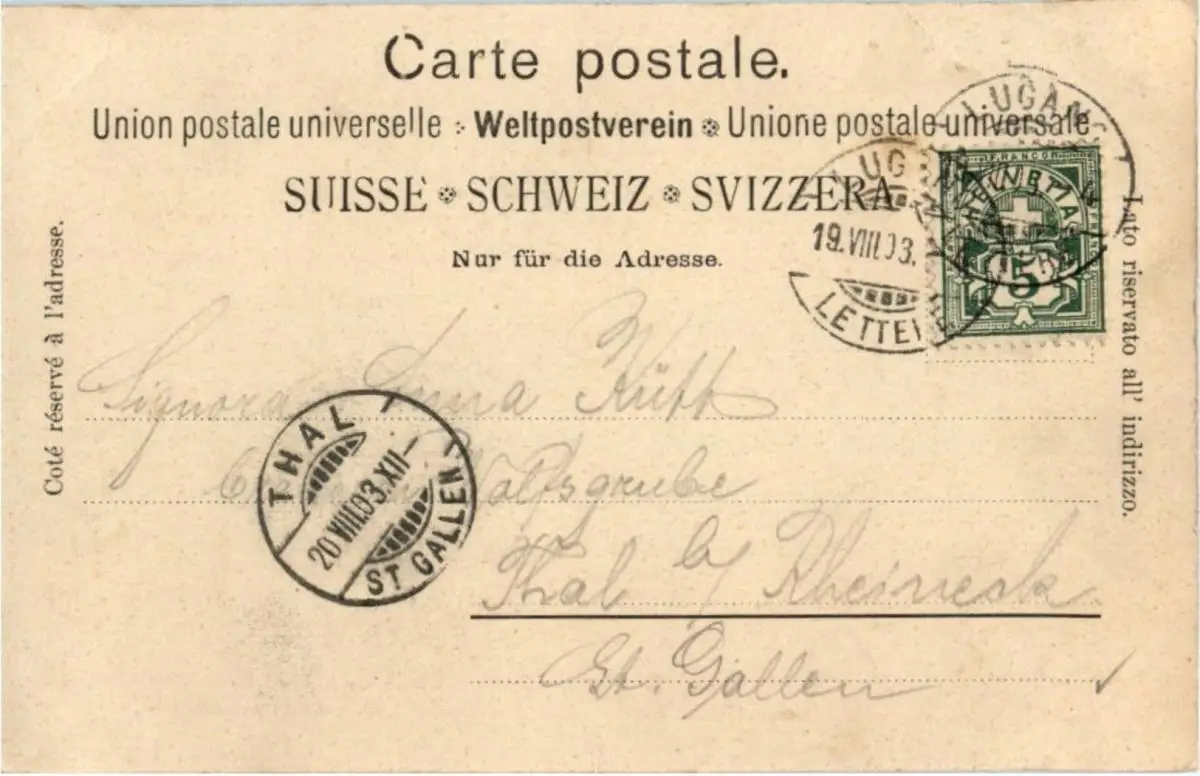 Carte postale.
Union postale universelle Weltpostverein Unione postale universale
SUISSE SCHWEIZ SVIZZERA
Nur für die Adresse.
Coté réservé à l'adresse.
Lato riservato all' indirizzo.
LUGANO
19.VIII.03.
LETTERE
FRANCO
HELVETIA
5
Signora
THAL
20 VIII.03.XII-
ST GALLEN
Thal b/ Rheineck
St. Gallen